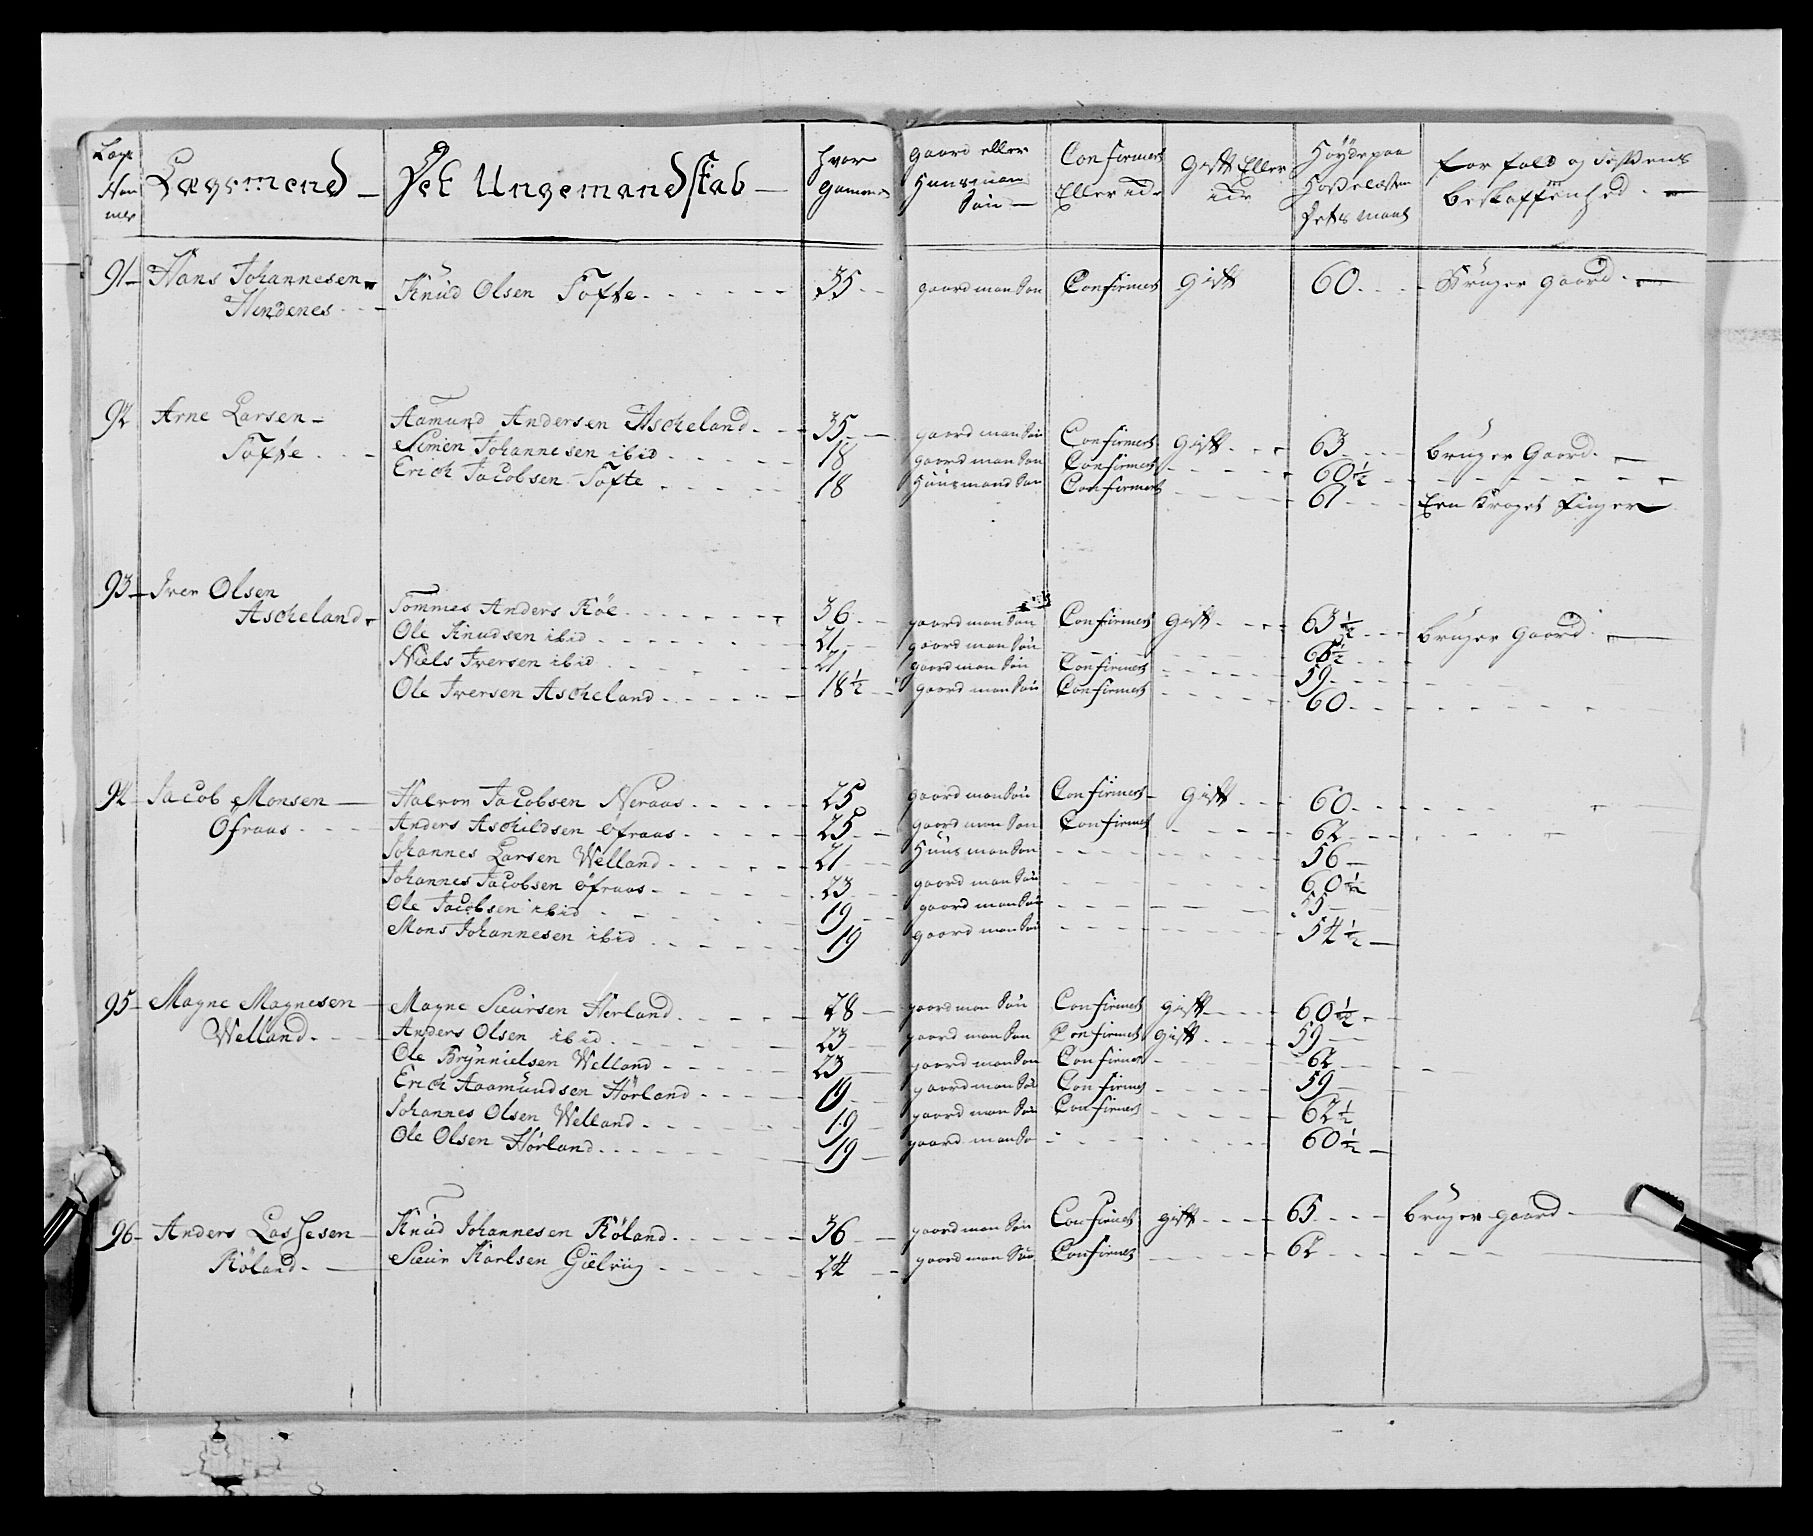 Lægs Nummer | Lægsmend | Det Ungemandskab | Hvor gammel | Gaard eller Huusmand Søn | Confirmert Eller Ide | Gift Eller Ide | Høyde paa | Forfald og
beskaffenhed
91 Hans Johannesen | Knud Olsen Tofte | 35 | gaardman Søn | Confirmert | Gift | 60 | Bruger Gaard
Hindenes
92 Arne Larsen | Aamund Andersen Ascheland | 35 | gaardman Søn | Confirmert | Gift | 63 | bruger Gaard
Tofte | Simen Johannesen ibid | 18 | gaardman Søn | Confirmert | 60½
Erich Jacobsen Tofte | 18 | Huusmand Søn | Confirmert | 61 | Een Kroget Finger
93 Iver Olsen
Ascheland | Tommes Anders Röe | 36 | gaardman Søn | Confirmert | Gift | 63½ | bruger Gaard
Ole Knudsen ibid | 21 | gaardman Søn
Niels Iversen ibid | 21 | gaardman Søn | Confirmert | 59
Ole Iversen Ascheland | 18½ | gaardman Søn | Confirmert | 60
94 Jacob Monsen | Halvor Jacobsen Neraas | 25 | gaardman Søn | Confirmert | Gift | 60
Öfraas | Anders Aschildsen Öfraas | 25 | gaardman Søn | Confirmert | 62
Johannes Larsen Welland | 21 | Huusman Søn | 56
Johannes Jacobsen Öfraas | 23 | gaardman Søn | 60½
Ole Jacobsen ibid | 19 | gaardman Søn | 55
Mons Johannesen ibid | 19 | gaardman Søn | 54½
95 Magne Magnesen | Magne Siursen Herland | 28 | gaardman Søn | Confirmert | gift | 60½
Welland | Anders Olsen ibid | 23 | gaardman Søn | Confirmert | Gift | 59
Ole Brynnielsen Welland | 23 | gaardman Søn | Confirmert | 62
Erich Aaamundsen Hörland | 19 | gaardman Søn | Confirmert | 59
Johannes Olsen Welland | 19 | gaardman Søn | Confirmert | 62½
Ole Olsen Hörland | 19 | gaardman Søn | 60½
96 Anders Lassesen | Knud Johannesen Röland | 36 | gaardman Søn | Confirmert | gift | 65 | bruger gaard
Röland | Sieur Karlsen Gielviig | 24 | gaardman Søn | Confirmert | 62